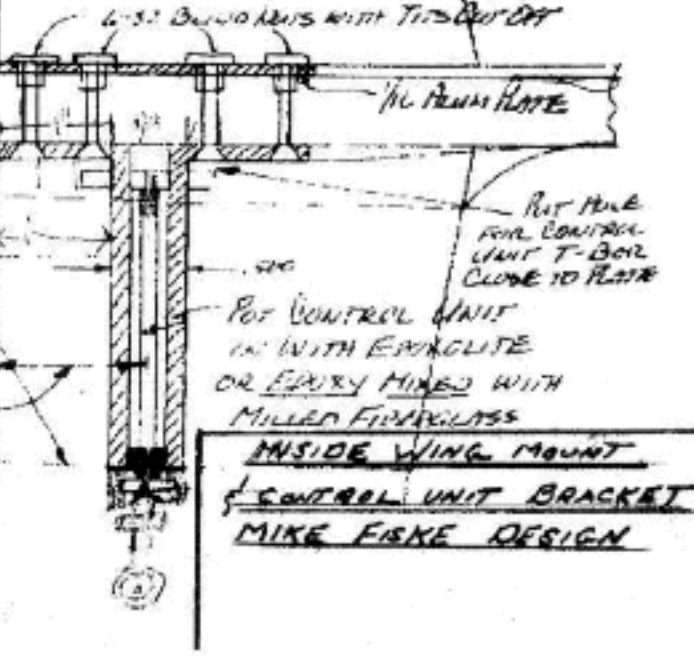 6-32 BLIND NUTS WITH TITS CUT OFF
1/16 ALUM PLATE
PUT HOLE
FOR CONTROL
UNIT T-BAR
CLOSE TO PLATE
.500
POT CONTROL UNIT
IN WITH EPOXOLITE
OR EPOXY MIXED WITH
MILLED FIBERGLASS
INSIDE WING MOUNT
& CONTROL UNIT BRACKET
MIKE FISKE DESIGN